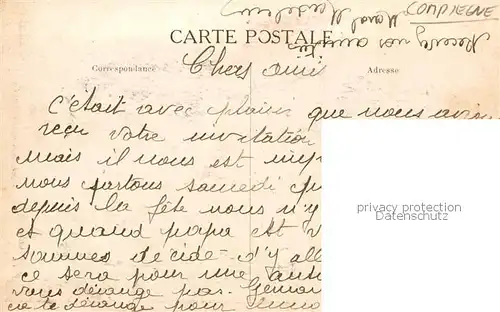 COMPIEGNE
Recevez nos amitiés
CARTE POSTALE
Chers amis
Correspondance
Adresse
C'était avec plaisir que nous avions
reçu votre invitation
mais il nous est imp
nous partons samedi
depuis la fête nous n'y
et quand papa est
sommes décidé d'y all
ce sera pour une autre
vous dérange pas.
cà te dérange pour
privacy protection
Datenschutz